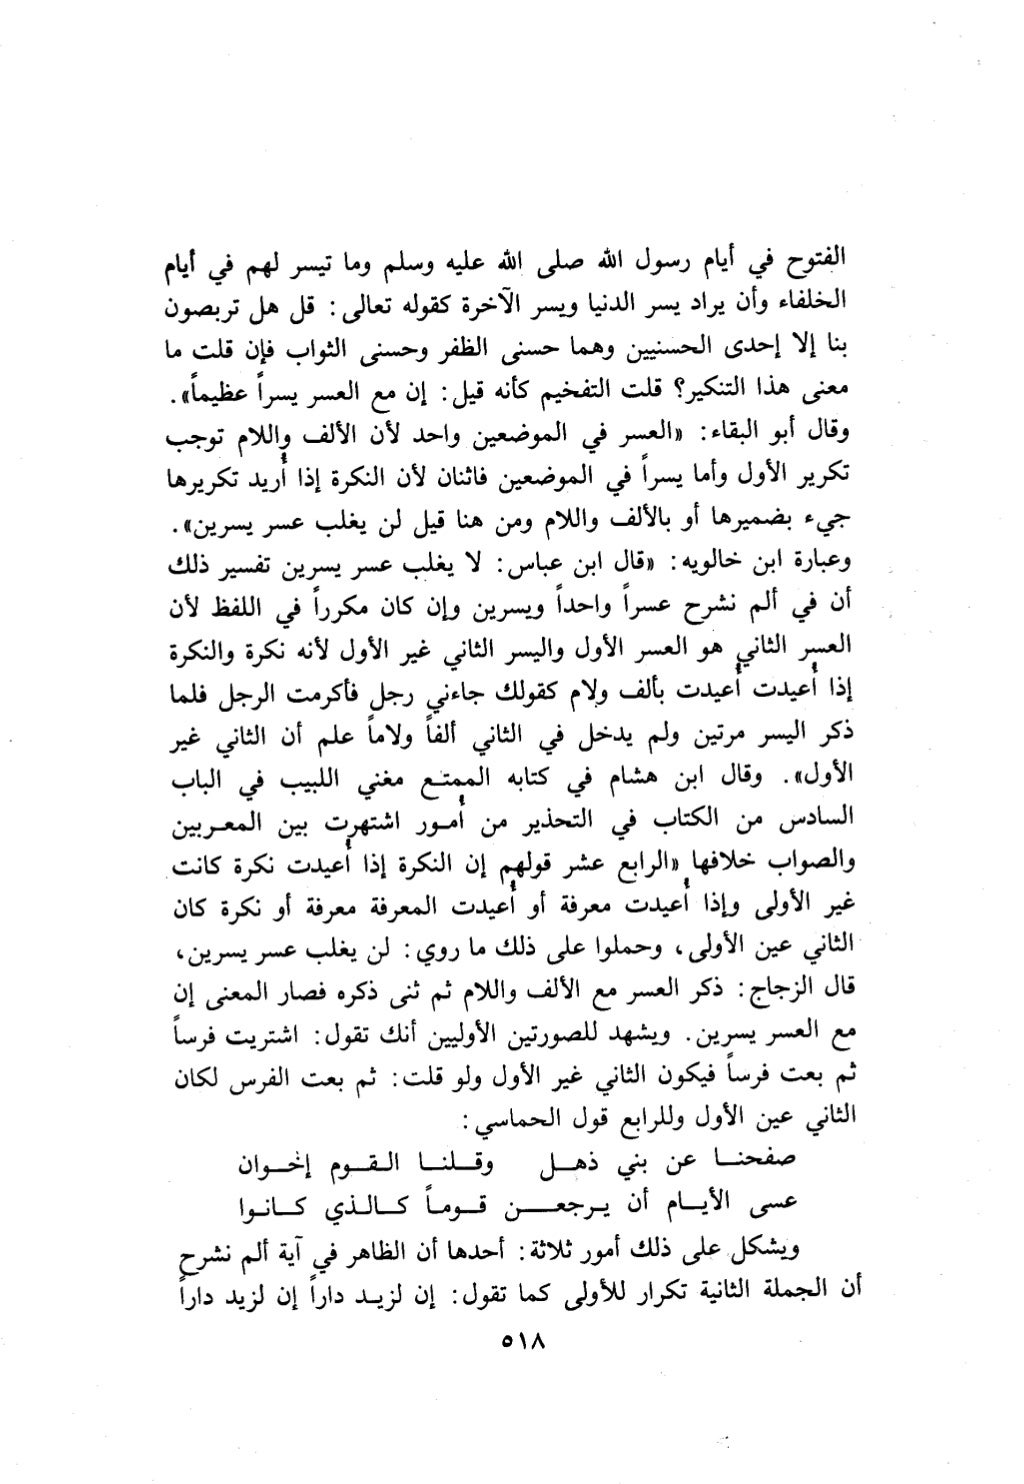 الفتوح في أيام رسول الله صلى الله عليه وسلم وما تيسر لهم في أيام
الخلفاء وأن يراد يسر الدنيا ويسر الآخرة كقوله تعالى: قل هل تربصون
بنا إلا إحدى الحسنيين وهما حسنى الظفر وحسنى الثواب فإن قلت ما
معنى هذا التنكير؟ قلت التفخيم كأنه قيل: إن مع العسر يسراً عظيماً».
وقال أبو البقاء: «العسر في الموضعين واحد لأن الألف واللام توجب
تكرير الأول وأما يسراً في الموضعين فاثنان لأن النكرة إذا أُريد تكريرها
جيء بضميرها أو بالألف واللام ومن هنا قيل لن يغلب عسر يسرين».
وعبارة ابن خالويه: «قال ابن عباس: لا يغلب عسر يسرين تفسير ذلك
أن في ألم نشرح عسراً واحداً ويسرين وإن كان مكرراً في اللفظ لأن
العسر الثاني هو العسر الأول واليسر الثاني غير الأول لأنه نكرة والنكرة
إذا أُعيدت أُعيدت بألف ولام كقولك جاءني رجل فأكرمت الرجل فلما
ذكر اليسر مرتين ولم يدخل في الثاني ألفاً ولاماً علم أن الثاني غير
الأول». وقال ابن هشام في كتابه الممتع مغني اللبيب في الباب
السادس من الكتاب في التحذير من أُمور اشتهرت بين المعربين
والصواب خلافها «الرابع عشر قولهم إن النكرة إذا أُعيدت نكرة كانت
غير الأولى وإذا أُعيدت معرفة أو أُعيدت المعرفة معرفة أو نكرة كان
الثاني عين الأولى، وحملوا على ذلك ما روي: لن يغلب عسر يسرين،
قال الزجاج: ذكر العسر مع الألف واللام ثم ثنى ذكره فصار المعنى إن
مع العسر يسرين. ويشهد للصورتين الأوليين أنك تقول: اشتريت فرساً
ثم بعت فرساً فيكون الثاني غير الأول ولو قلت: ثم بعت الفرس لكان
الثاني عين الأول وللرابع قول الحماسي:
صفحنا عن بني ذهل وقلنا القوم إخوان
عسى الأيام أن يرجعن قوماً كالذي كانوا
ويشكل على ذلك أمور ثلاثة: أحدها أن الظاهر في آية ألم نشرح
أن الجملة الثانية تكرار للأولى كما تقول: إن لزيد داراً إن لزيد داراً
٥١٨